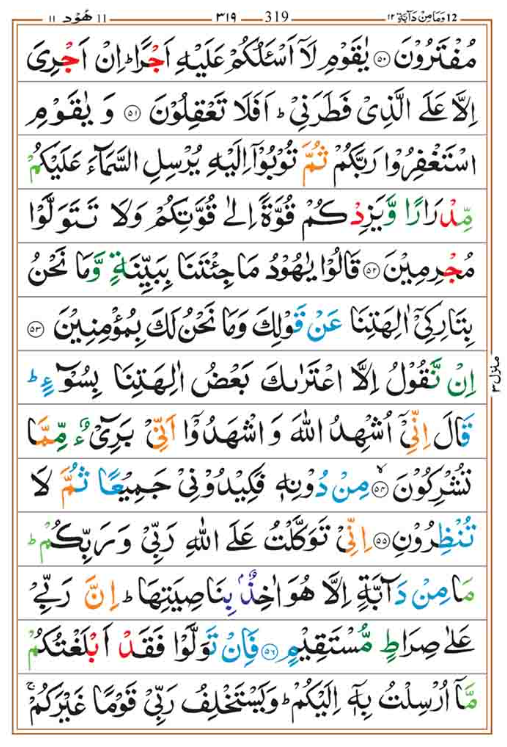 ۱۱ هُوْد ۱۱ ۳۱۹ 319 12 وَمَا مِنْ دَآبَّةٍ ۱۲
مُفْتَرُوْنَ ۝۵۰ يٰقَوْمِ لَاۤ اَسْـَٔلُكُمْ عَلَيْهِ اَجْرًا ؕ اِنْ اَجْرِيَ
اِلَّا عَلَى الَّذِيْ فَطَرَنِيْ ؕ اَفَلَا تَعْقِلُوْنَ ۝۵۱ وَ يٰقَوْمِ
اسْتَغْفِرُوْا رَبَّكُمْ ثُمَّ تُوْبُوْۤا اِلَيْهِ يُرْسِلِ السَّمَآءَ عَلَيْكُمْ
مِّدْرَارًا وَّيَزِدْكُمْ قُوَّةً اِلٰى قُوَّتِكُمْ وَلَا تَتَوَلَّوْا
مُجْرِمِيْنَ ۝۵۲ قَالُوْا يٰهُوْدُ مَا جِئْتَنَا بِبَيِّنَةٍ وَّمَا نَحْنُ
بِتَارِكِيْۤ اٰلِهَتِنَا عَنْ قَوْلِكَ وَمَا نَحْنُ لَكَ بِمُؤْمِنِيْنَ ۝۵۳
اِنْ نَّقُوْلُ اِلَّا اعْتَرٰىكَ بَعْضُ اٰلِهَتِنَا بِسُوْٓءٍ ؕ
قَالَ اِنِّيْۤ اُشْهِدُ اللّٰهَ وَ اشْهَدُوْۤا اَنِّيْ بَرِيْٓءٌ مِّمَّا
تُشْرِكُوْنَ ۝۵۴ مِنْ دُوْنِهٖ فَكِيْدُوْنِيْ جَمِيْعًا ثُمَّ لَا
تُنْظِرُوْنِ ۝۵۵ اِنِّيْ تَوَكَّلْتُ عَلَى اللّٰهِ رَبِّيْ وَ رَبِّكُمْ ؕ
مَا مِنْ دَآبَّةٍ اِلَّا هُوَ اٰخِذٌۢ بِنَاصِيَتِهَا ؕ اِنَّ رَبِّيْ
عَلٰى صِرَاطٍ مُّسْتَقِيْمٍ ۝۵۶ فَاِنْ تَوَلَّوْا فَقَدْ اَبْلَغْتُكُمْ
مَّاۤ اُرْسِلْتُ بِهٖۤ اِلَيْكُمْ ؕ وَيَسْتَخْلِفُ رَبِّيْ قَوْمًا غَيْرَكُمْ ۚ
منزل ۳